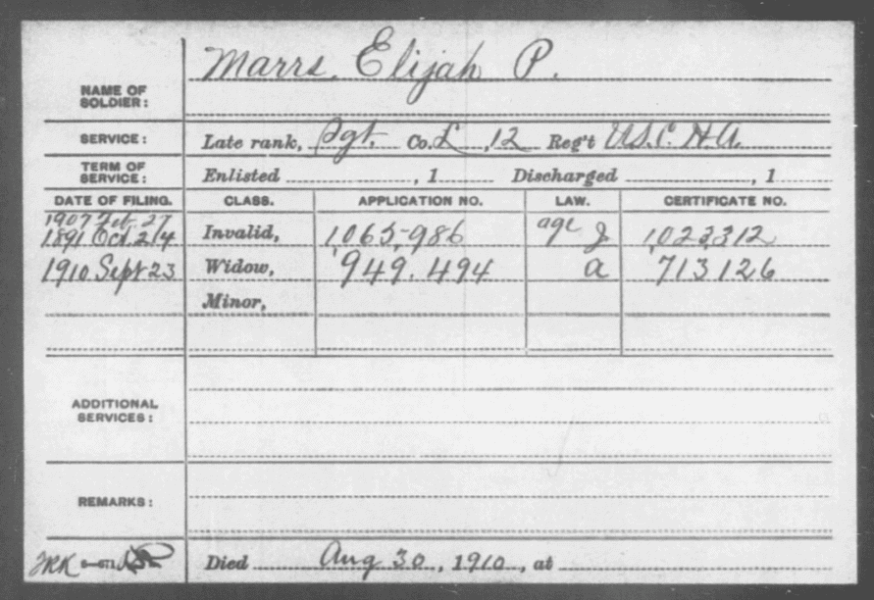 Marrs, Elijah P.
NAME OF
SOLDIER:
SERVICE: Late rank, Sgt. Co. L, 12 Reg't U.S.C.H.A.
TERM OF
SERVICE: Enlisted , 1 Discharged , 1
DATE OF FILING. CLASS. APPLICATION NO. LAW. CERTIFICATE NO.
1907 Feb. 27 age
1891 Oct. 24 Invalid, 1,065,986 J 1,023,312
1910 Sept 23 Widow, 949.494 a 713126
Minor,
ADDITIONAL
SERVICES:
REMARKS:
Died Aug 30, 1910, at